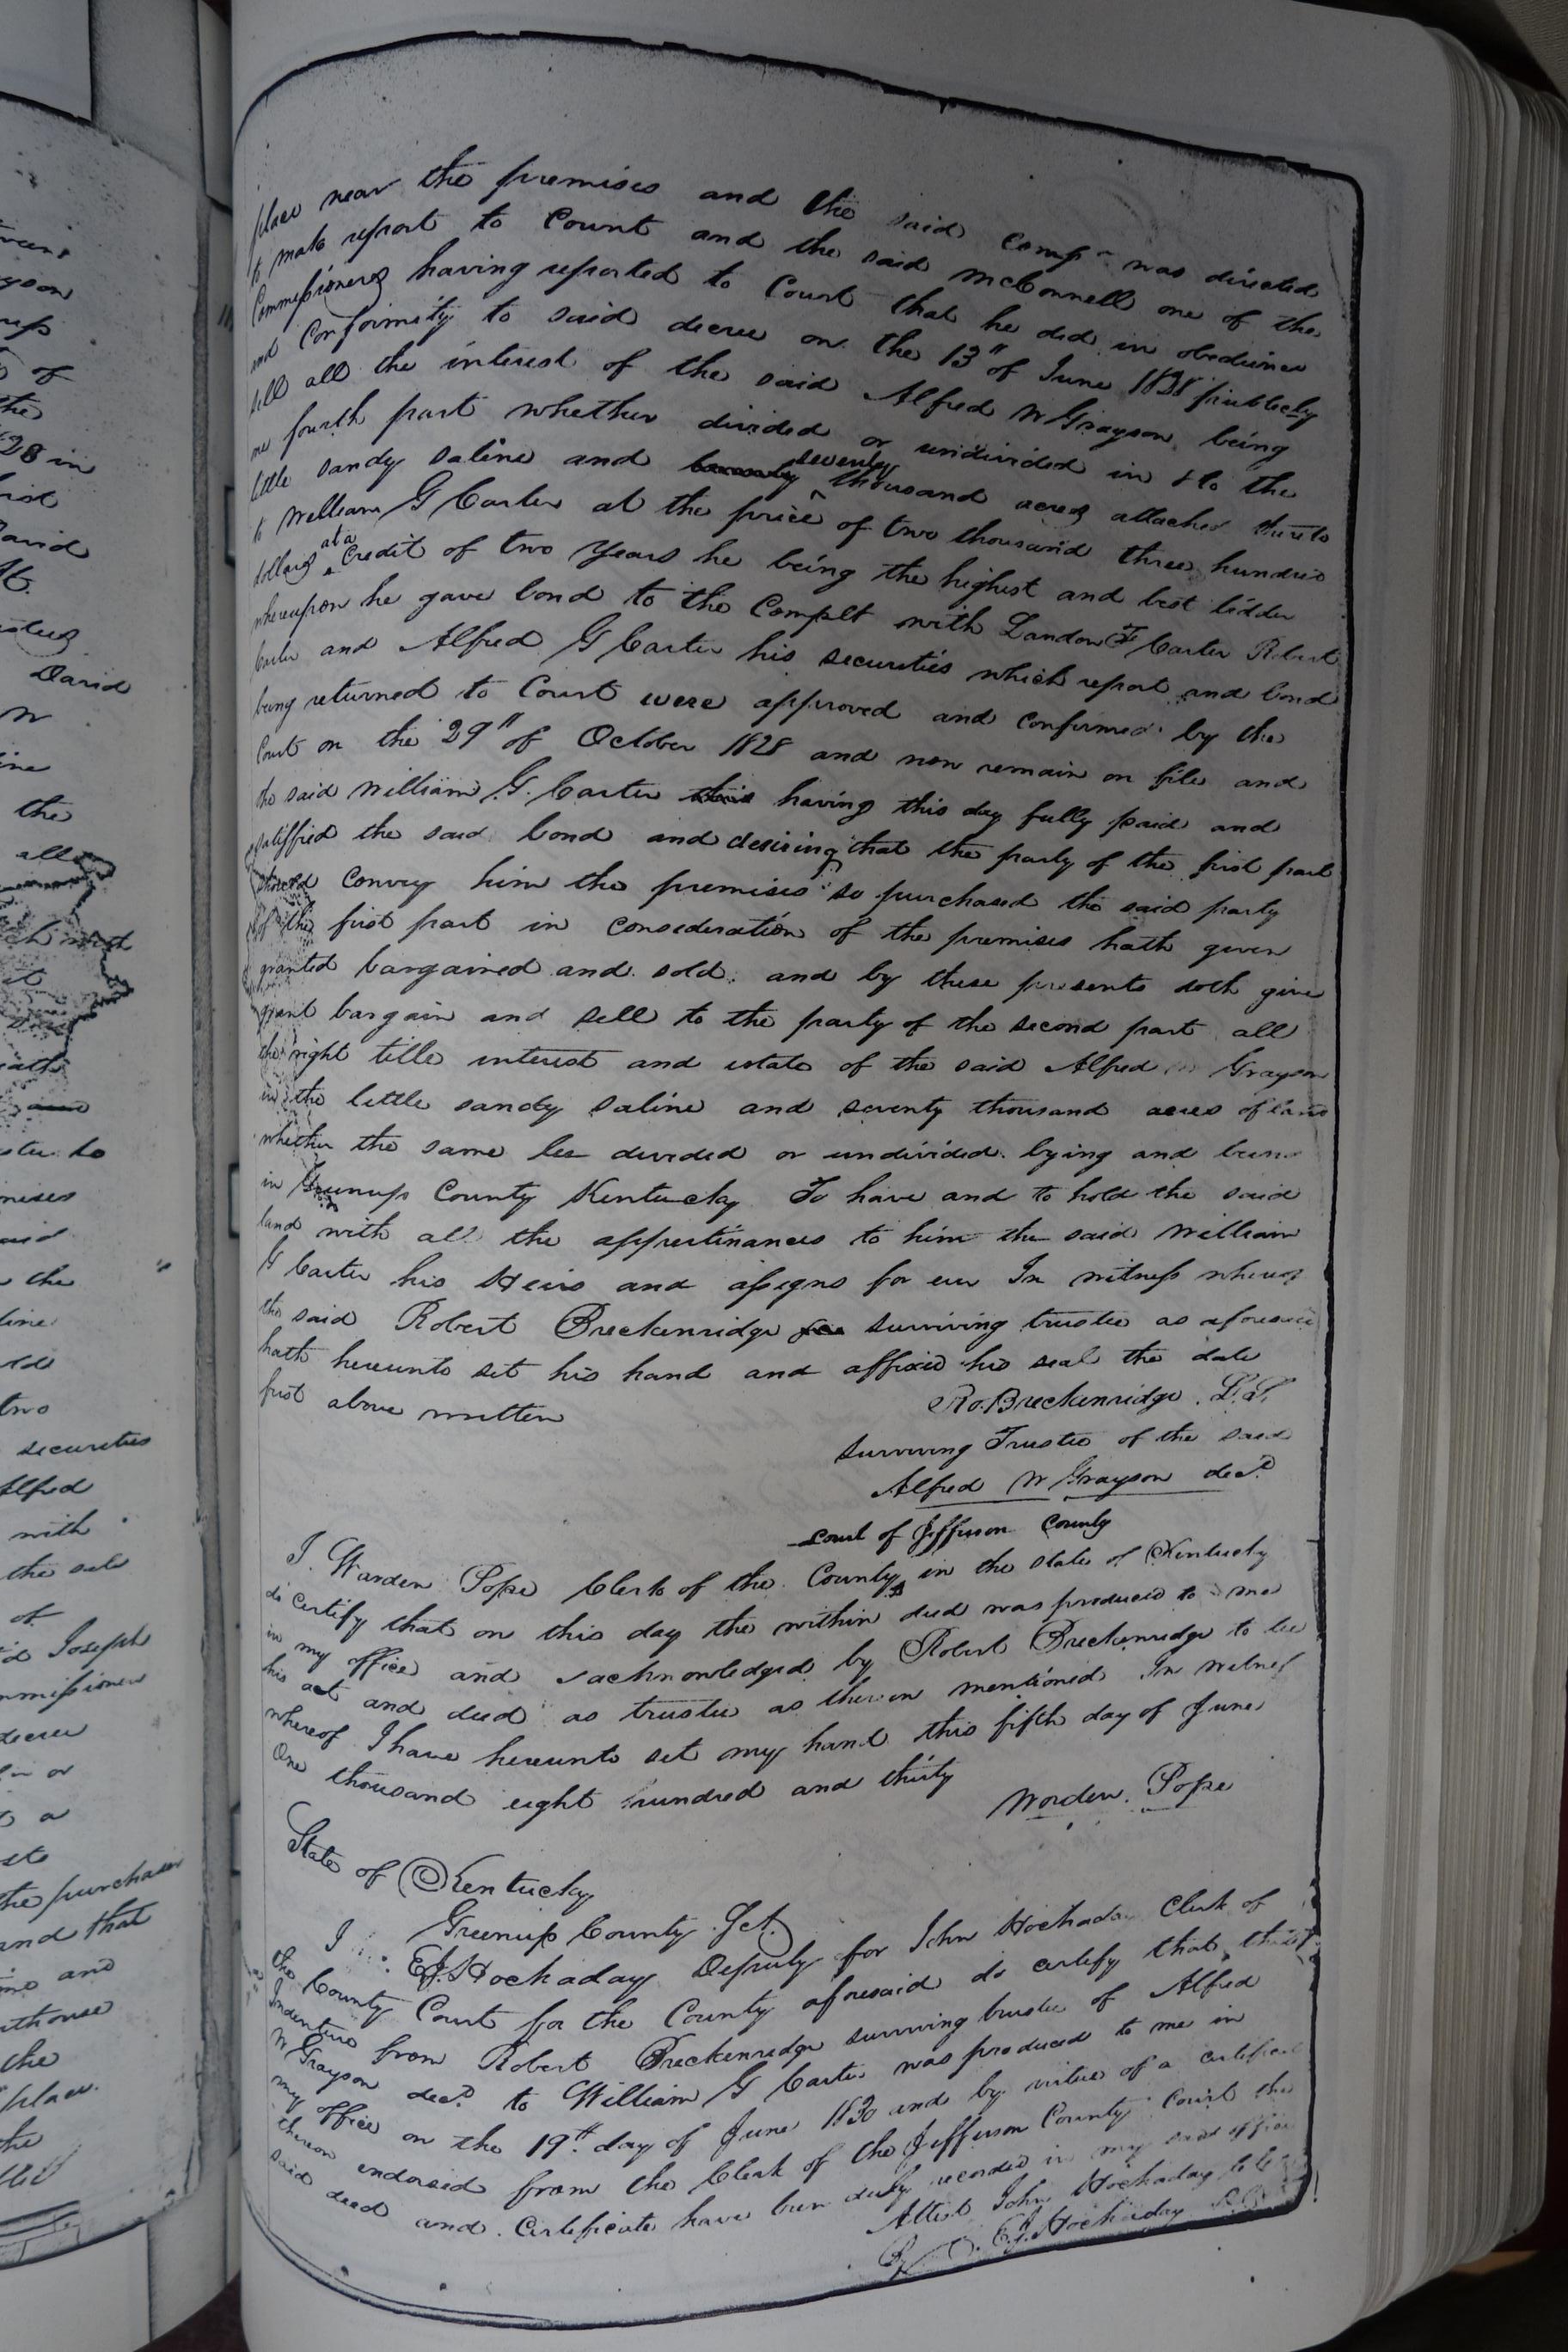 place near the premises and the said Comp was directed
to make report to Court and the said McConnell one of the
Commissioners having reported to Court that he did in obedience
and Conformity to said decree on the 13" of June 1828 publicly
sell all the interest of the said Alfred W Grayson being
one fourth part whether divided or undivided in & to the
little sandy saline and seventy thousand acres attached thereto
to William G Carter at the price of two thousand three hundred
dollars at a Credit of two Years he being the highest and best bidder
whereupon he gave bond to the Complt with Landon F Carter Robert
Carter and Alfred G Carter his securities which report and bond
being returned to Court were approved and confirmed by the
Court on the 29" of October 1828 and now remain on file and
the said William G. Carter this having this day fully paid and
satisfied the said bond and desiring that the party of the first part
should Convey him the premises so purchased the said party
of the first part in consideration of the premises hath given
granted bargained and sold and by these presents doth give
grant bargain and sell to the party of the second part all
the right title interest and estate of the said Alfred W Grayson
in the little sandy saline and seventy thousand acres of land
whether the same be divided or undivided lying and being
in Greenup County Kentucky To have and to hold the said
land with all the appertinances to him the said William
G Carter his Heirs and assigns for ever In witness whereof
the said Robert Breckenridge surviving trustee as aforesaid
hath hereunto set his hand and affixed his seal the date
first above written
Ro. Breckenridge. L.S.
Surviving Trustee of the said
Alfred W Grayson decd.
Court of Jefferson County
I. Warden Pope Clerk of the County in the state of Kentucky
do certify that on this day the within deed was produced to me
in my office and acknowledged by Robert Breckenridge to be
his act and deed as trustee as therein mentioned In witness
whereof I have hereunto set my hand this fifth day of June
One thousand eight hundred and thirty
Worden. Pope
State of Kentucky
Greenup County Sct.
I E.J. Hockaday Deputy for John Hockaday Clerk of
the County Court for the County aforesaid do certify that this
Indenture from Robert Breckenridge surviving trustee of Alfred
W Grayson decd. to William G Carter was produced to me in
my office on the 19th day of June 1830 and by virtue of a certificate
thereon endorsed from the Clerk of the Jefferson County Court the
said deed and Certificate have been duly recorded in my said office
Attest John Hockaday
By E.J. Hockaday